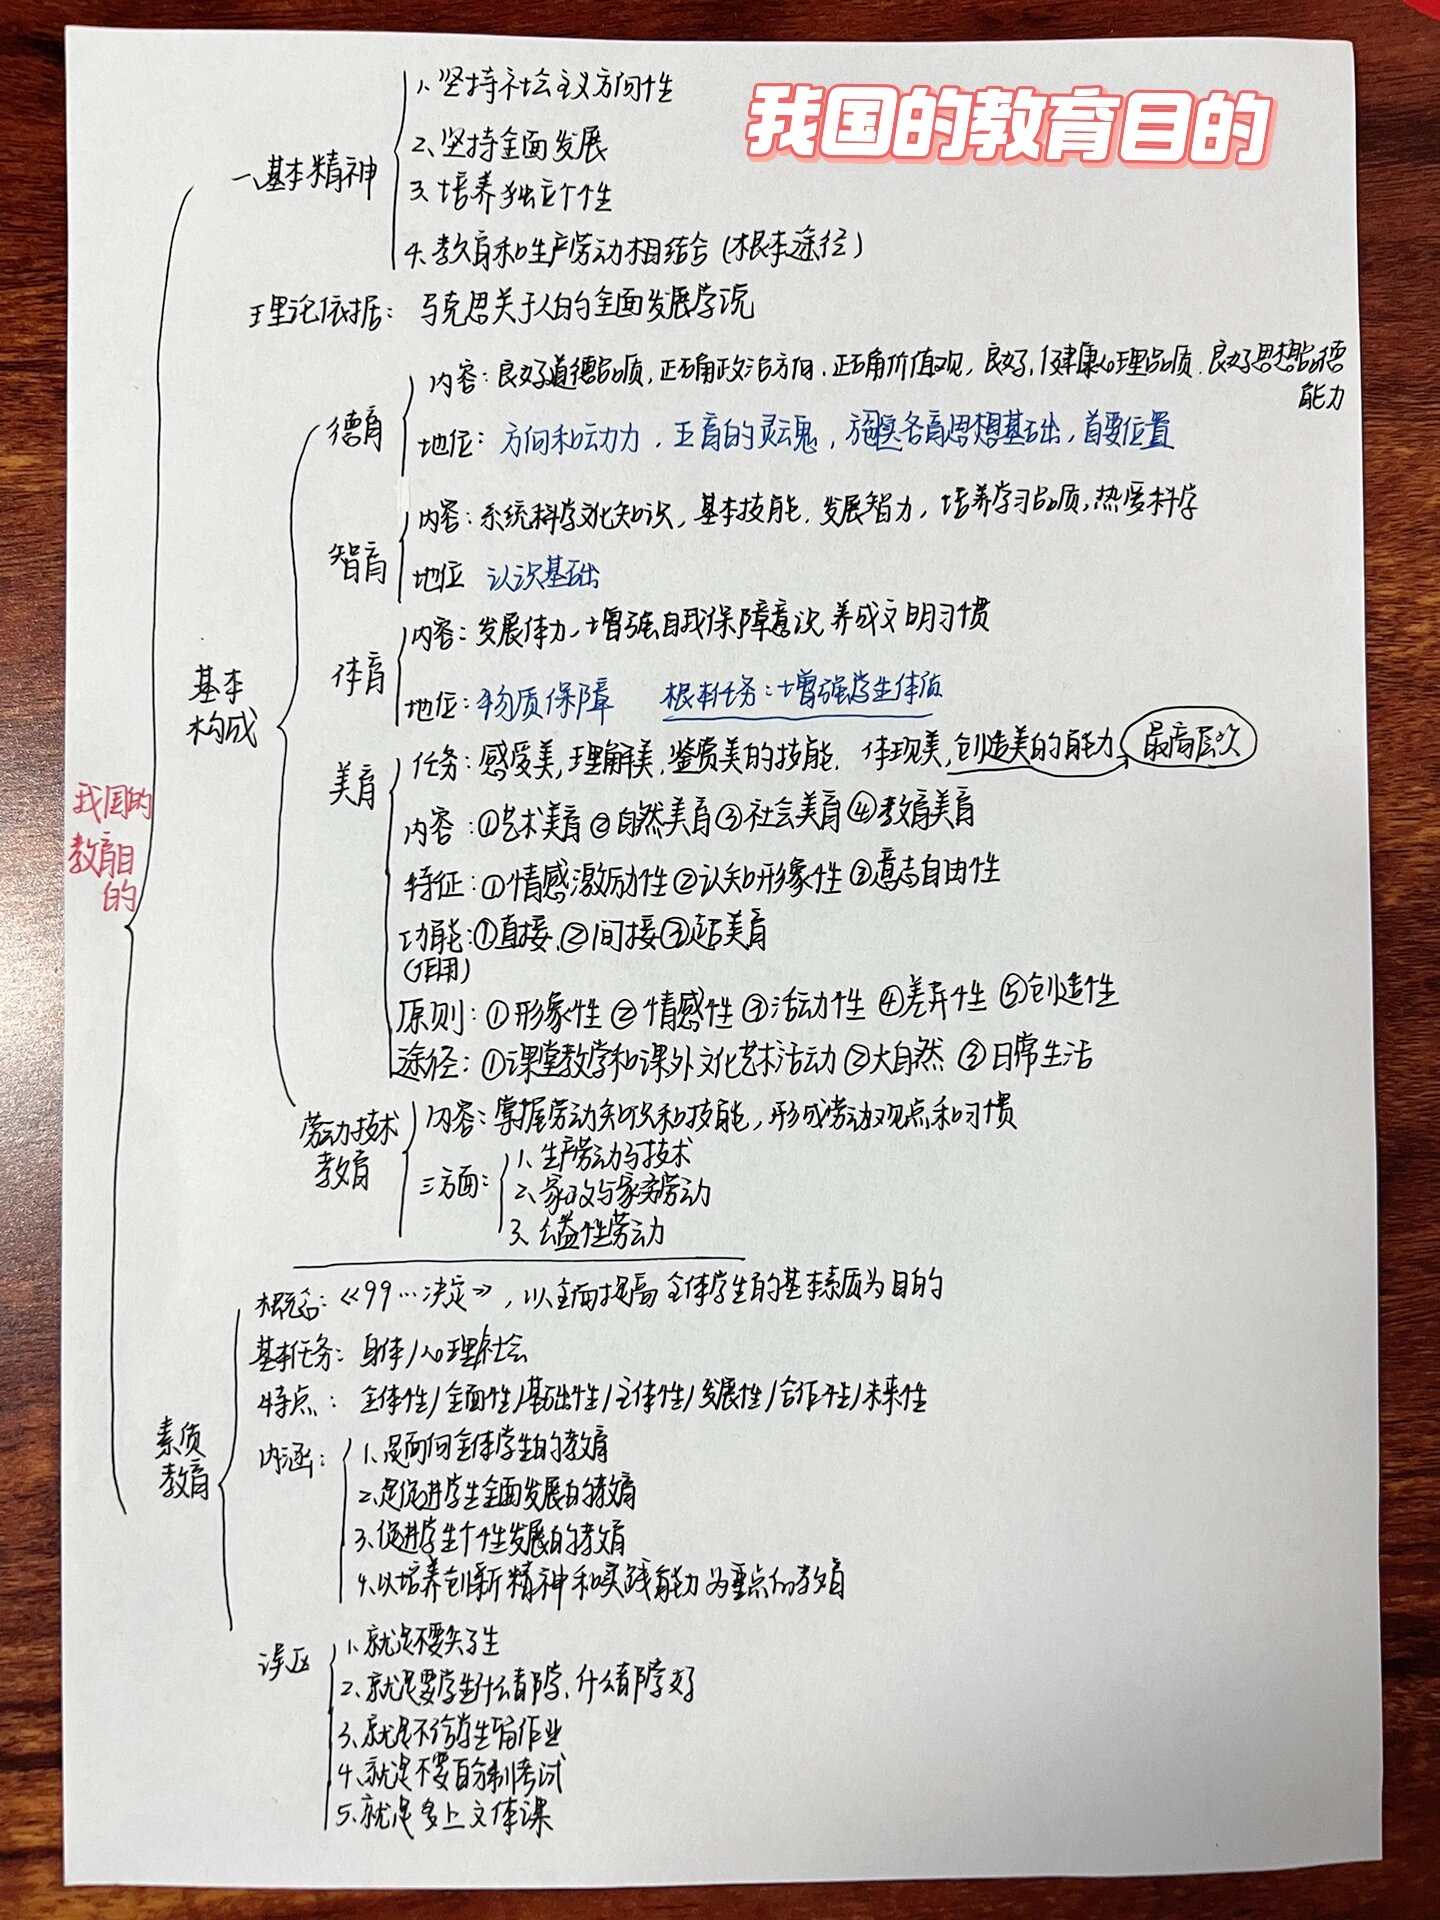 我国的教育目的
我国的
教育目
的
一、基本精神
1、坚持社会主义方向性
2、坚持全面发展
3、培养独立个性
4、教育和生产劳动相结合(根本途径)
理论依据：马克思关于人的全面发展学说
基本
构成
德育
内容：良好道德品质,正确政治方向、正确价值观,良好,健康心理品质、良好思想品德
能力
地位：方向和动力,五育的灵魂,施实各育思想基础,首要位置
智育
内容：系统科学文化知识,基本技能,发展智力,培养学习品质,热爱科学
地位 认识基础
体育
内容：发展体力、增强自我保障意识 养成文明习惯
地位：物质保障 根本任务：增强学生体质
美育
任务：感受美,理解美,鉴赏美的技能, 体现美,创造美的能力 最高层次
内容：①艺术美育②自然美育③社会美育④教育美育
特征：①情感激励性②认知形象性③意志自由性
功能：①直接、②间接③超美育
(作用)
原则：①形象性②情感性③活动性④差异性⑤创造性
途径：①课堂教学和课外文化艺术活动②大自然③日常生活
劳动技术
教育
内容：掌握劳动知识和技能,形成劳动观点和习惯
三方面：
1、生产劳动与技术
2、家政与家务劳动
3、公益性劳动
素质
教育
概念：《99…决定》,以全面提高全体学生的基本素质为目的
基本任务：身体/心理/社会
特点：全体性/全面性/基础性/主体性/发展性/合作性/未来性
内涵：
1、是面向全体学生的教育
2、是促进学生全面发展的教育
3、促进学生个性发展的教育
4、以培养创新精神和实践能力为重点的教育
误区
1、就是不要尖子生
2、就是要学生什么都学、什么都学好
3、就是不给学生留作业
4、就是不要百分制考试
5、就是多上文体课